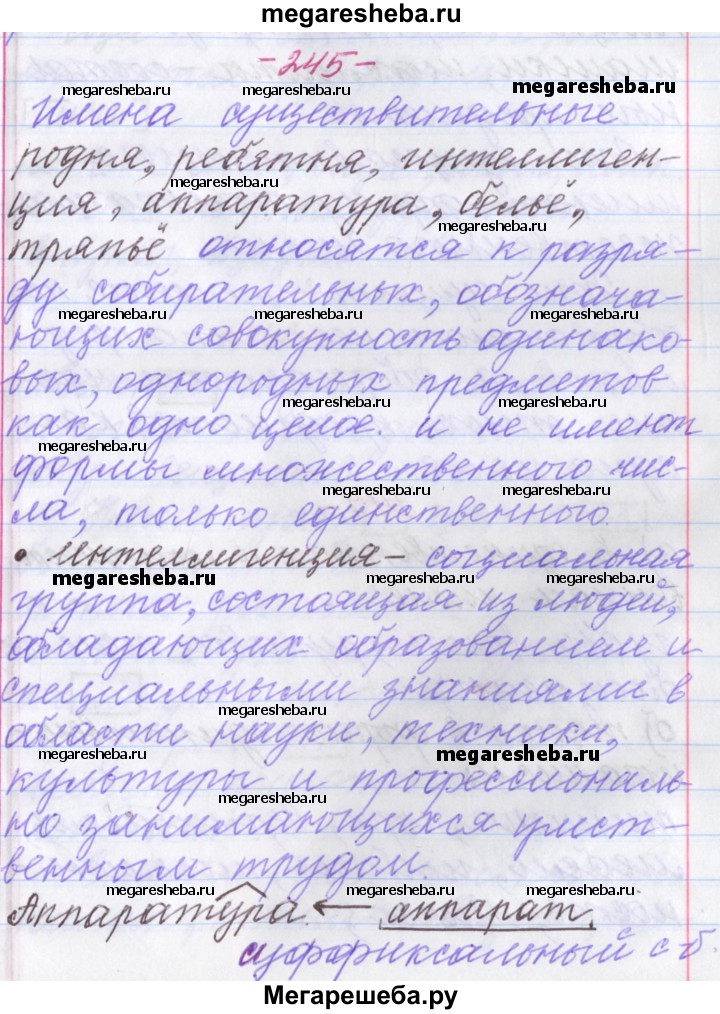 megaresheba.ru
-245-
megaresheba.ru megaresheba.ru megaresheba.ru
Имена существительные
родня, ребятня, интеллиген-
megaresheba.ru
ция, аппаратура, бельё,
megaresheba.ru
тряпьё относятся к разря-
ду собирательных, обознача-
megaresheba.ru megaresheba.ru megaresheba.ru
ющих совокупность одинако-
вых, однородных предметов
megaresheba.ru megaresheba.ru
как одно целое. и не имеют
megaresheba.ru
формы множественного чис-
megaresheba.ru megaresheba.ru
ла, только единственного.
• Интеллигенция – социальная
megaresheba.ru megaresheba.ru
группа, состоящая из людей,
обладающих образованием и
специальными знаниями в
megaresheba.ru
области науки, техники,
megaresheba.ru megaresheba.ru
культуры и профессиональ
megaresheba.ru
но занимающихся умст-
венным трудом.
megaresheba.ru megaresheba.ru megaresheba.ru
Аппаратура ← аппарат
суффиксальный с-б.
Мегарешеба.ру